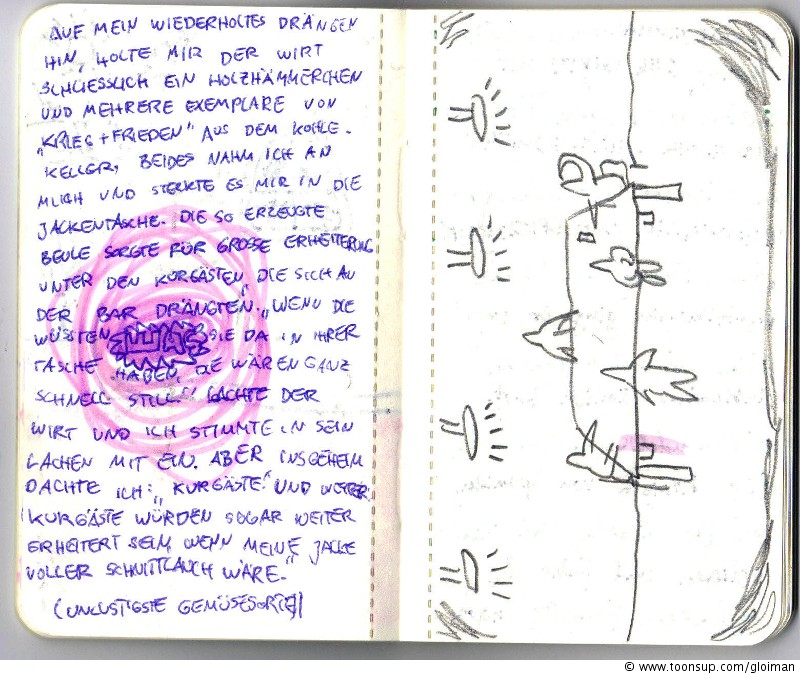 AUF MEIN WIEDERHOLTES DRÄNGEN
HIN, HOLTE MIR DER WIRT
SCHLIESSLICH EIN HOLZHÄMMERCHEN
UND MEHRERE EXEMPLARE VON
„KRIEG + FRIEDEN" AUS DEM KOHLE-
KELLER, BEIDES NAHM ICH AN
MICH UND STECKTE ES MIR IN DIE
JACKENTASCHE. DIE SO ERZEUGTE
BEULE SORGTE FÜR GROSSE ERHEITERUNG
UNTER DEN KURGÄSTEN, DIE SICH AN
DER BAR DRÄNGTEN. „WENN DIE
WÜSSTEN SIE DA IN IHRER
TASCHE HABEN, DIE WÄREN GANZ
SCHNELL STILL" LACHTE DER
WIRT UND ICH STIMMTE IN SEIN
LACHEN MIT EIN. ABER INSGEHEIM
DACHTE ICH: „KURGÄSTE" UND
KURGÄSTE WÜRDEN SOGAR WEITER
ERHEITERT SEIN, WENN MEINE JACKE
VOLLER SCHNITTLAUCH WÄRE."
(UNLUSTIGSTE GEMÜSESORTE)
© www.toonsup.com/gloiman